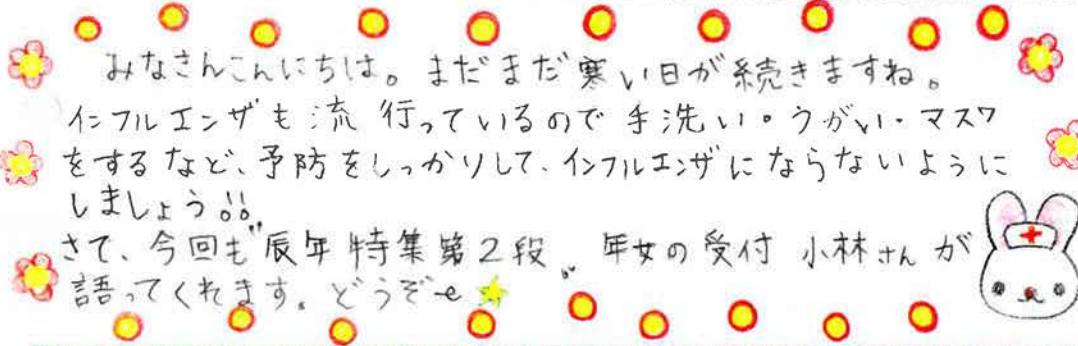 みなさんこんにちは。まだまだ寒い日が続きますね。
インフルエンザも流行っているので手洗い・うがい・マスク
をするなど、予防をしっかりして、インフルエンザにならないように
しましょう!!
さて、今回も"辰年特集第2段"年女の受付 小林さんが
語ってくれます。どうぞ〜